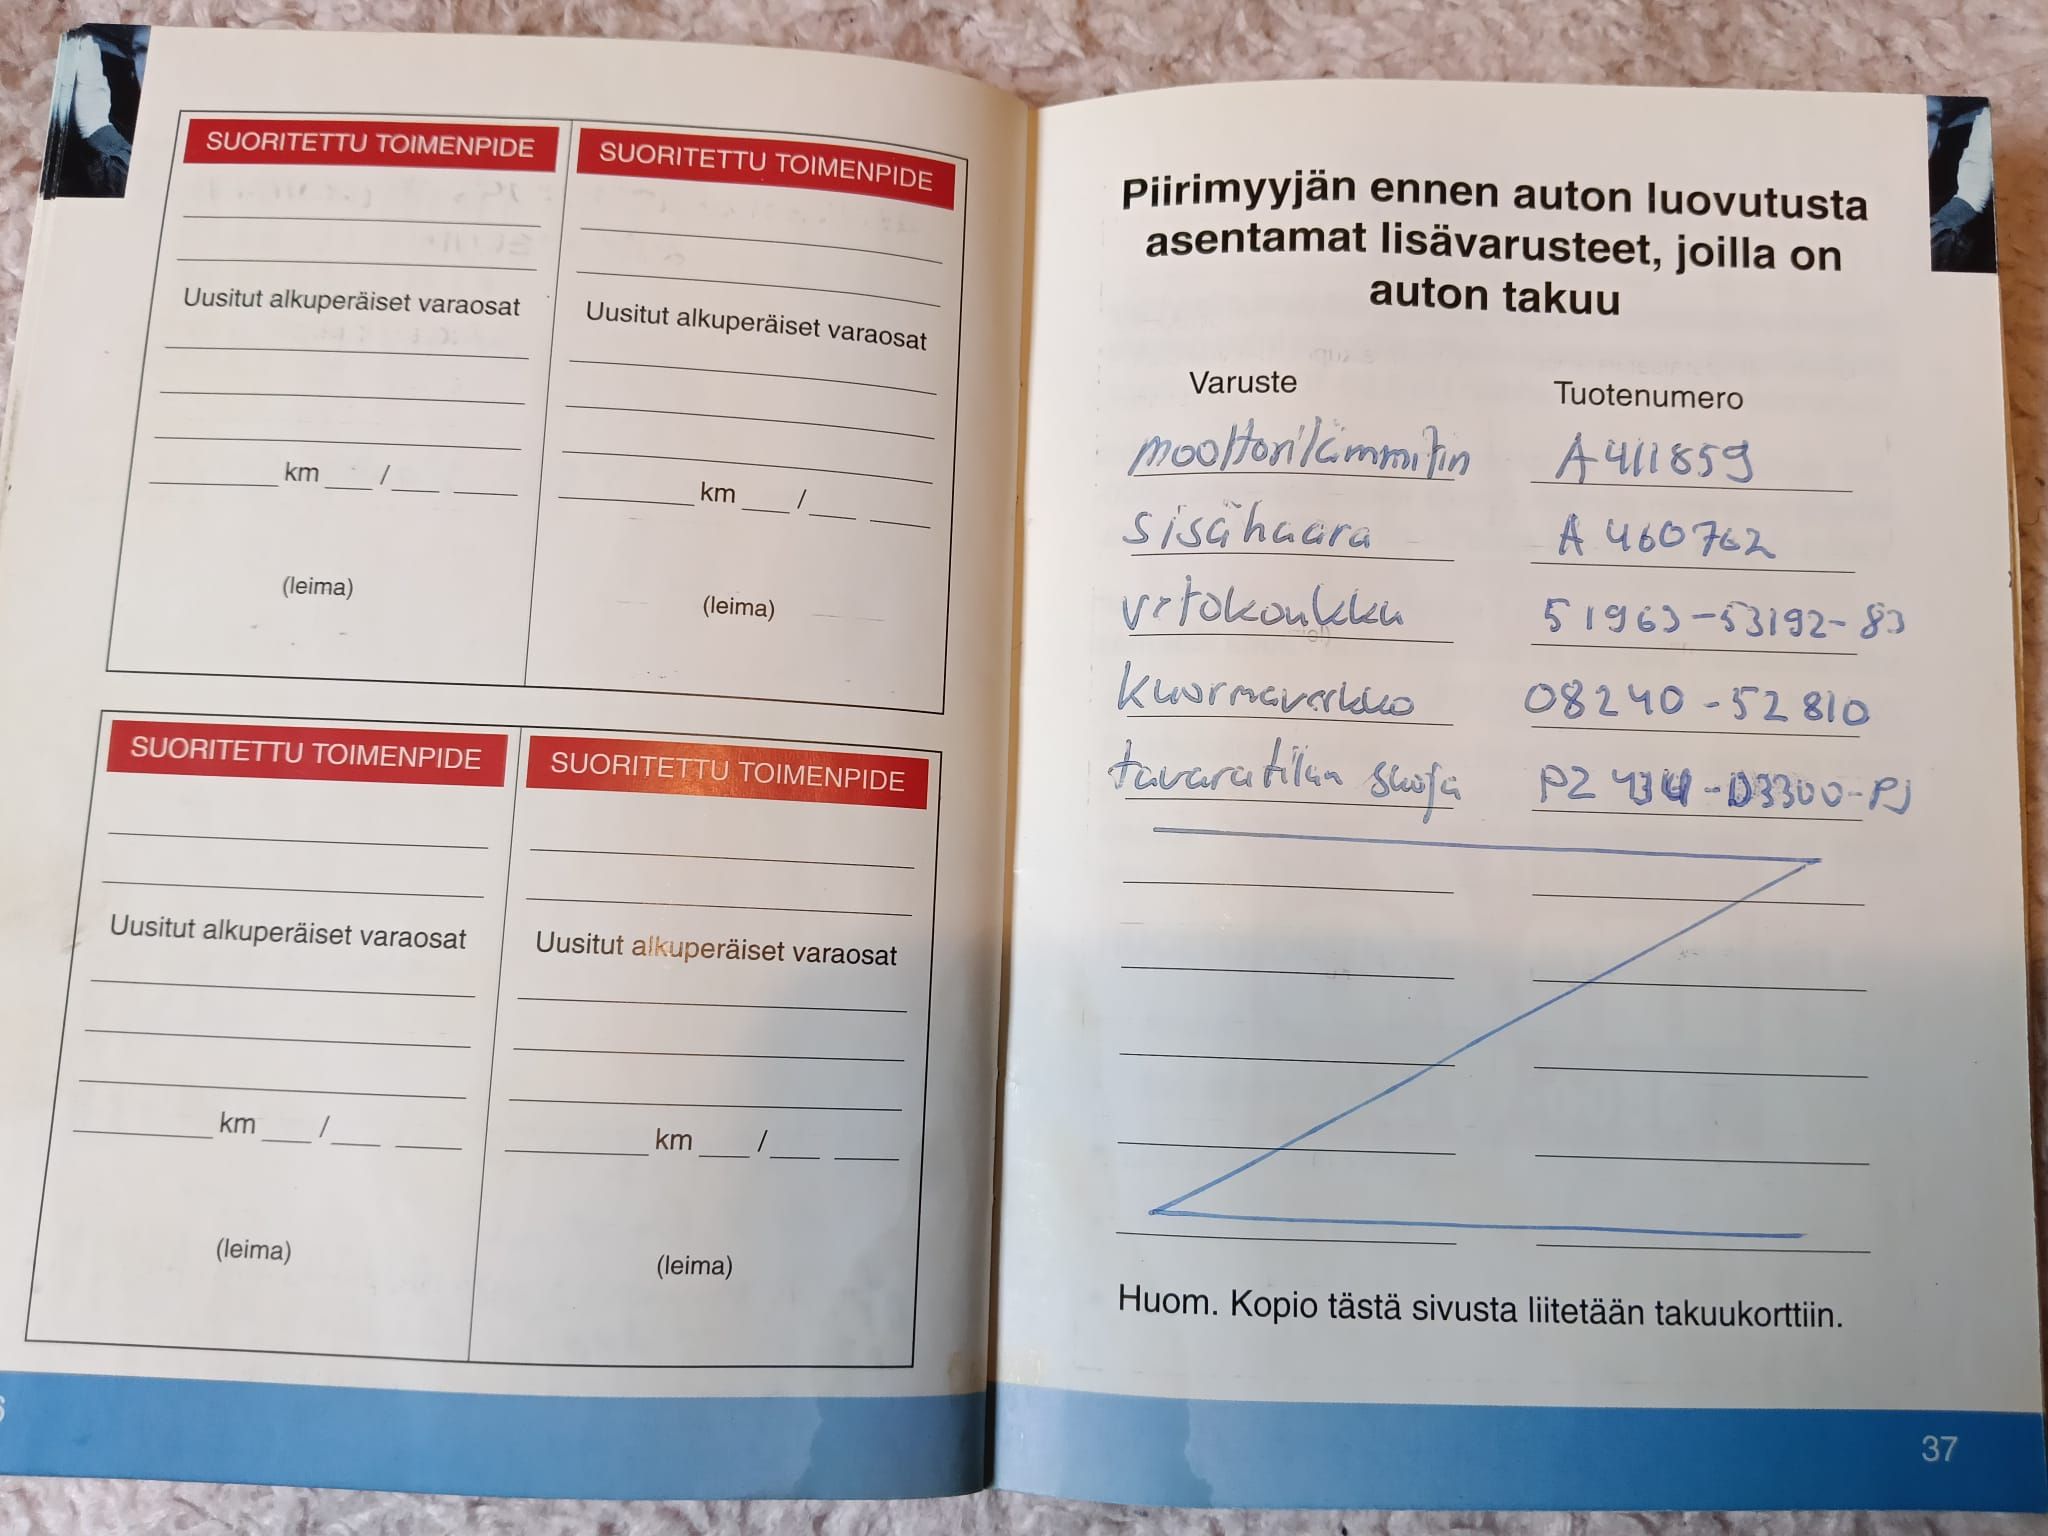 SUORITETTU TOIMENPIDE
Uusitut alkuperäiset varaosat
km / 
(leima)
SUORITETTU TOIMENPIDE
Uusitut alkuperäiset varaosat
km / 
(leima)
SUORITETTU TOIMENPIDE
Uusitut alkuperäiset varaosat
km / 
(leima)
SUORITETTU TOIMENPIDE
Uusitut alkuperäiset varaosat
km / 
(leima)
Piirimyyjän ennen auton luovutusta
asentamat lisävarusteet, joilla on
auton takuu
Varuste Tuotenumero
moottorilämmitin A411859
sisähaara A 460762
vetokoukku 51963-53192-83
kuormaverkko 08240-52810
tavaratilan suoja PZ 434-D3300-PJ
Huom. Kopio tästä sivusta liitetään takuukorttiin.
37